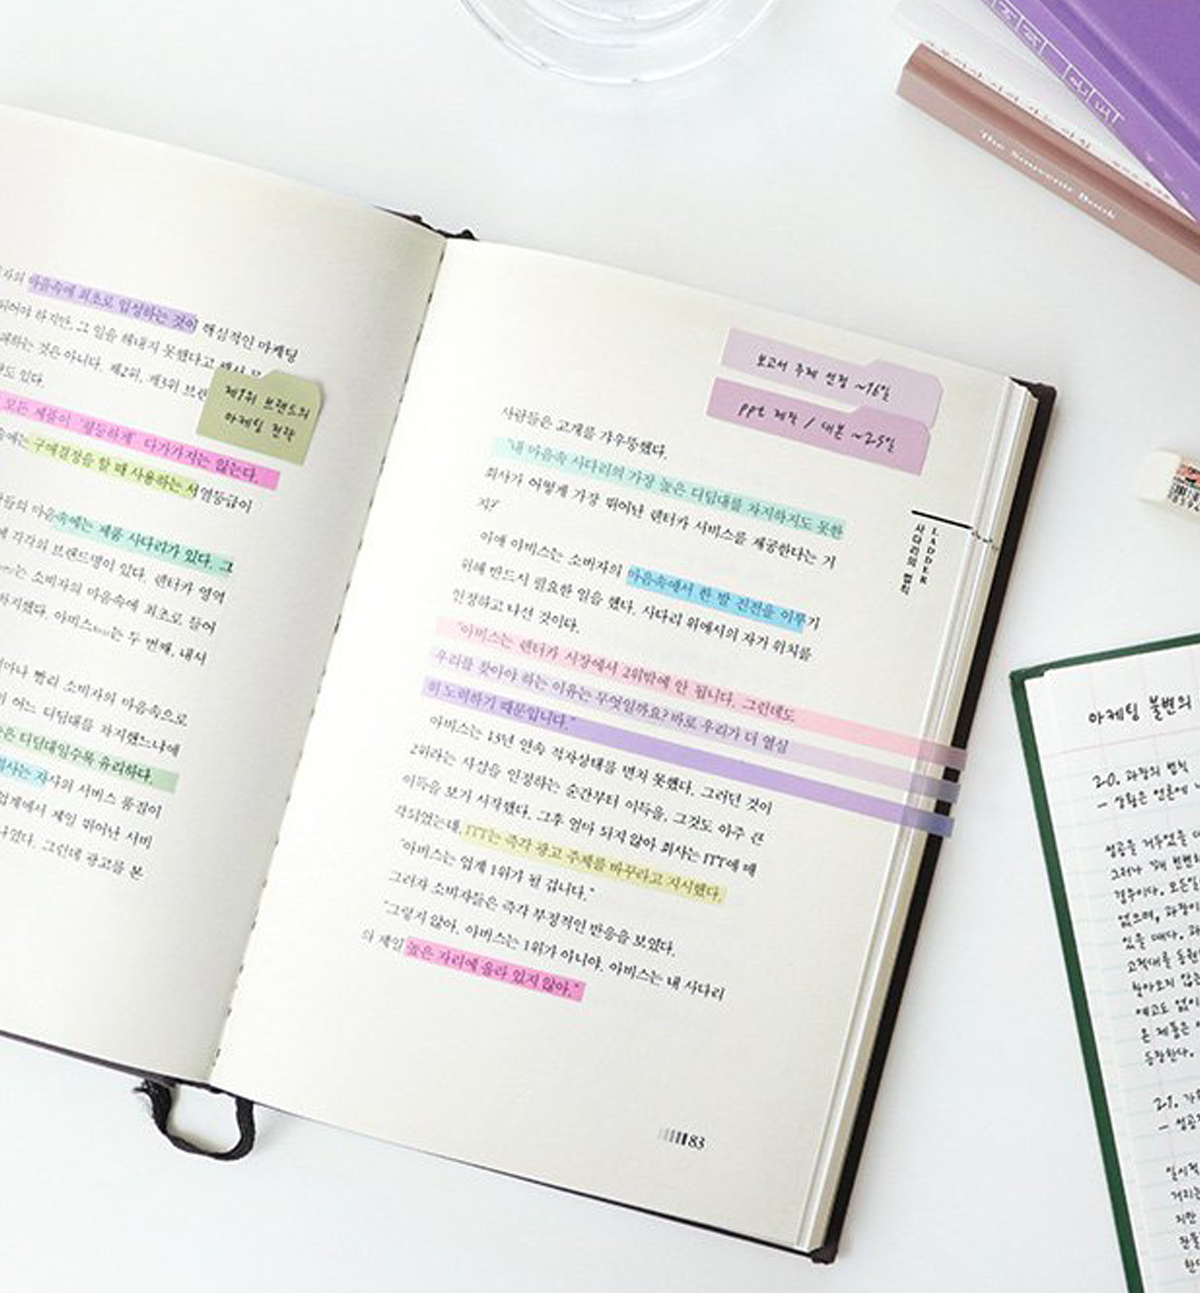 The Souvenir Book
마음속에 최초로 입성하는 것이 핵심적인 마케팅
되어야 하지만, 그 일을 해내지 못했다고 해서
과하는 것은 아니다. 제2위, 제3위 브랜
도 있다.
제1위 브랜드의
마케팅 전략
모든 제품이 '평등하게' 다가가지는 않는다.
속에는 구매결정을 할 때 사용하는 서열등급이
들의 마음속에는 제품 사다리가 있다. 그
에 각각의 브랜드명이 있다. 렌터카 영역
는 소비자의 마음속에 최초로 들어
차지했다. 아비스는 두 번째, 내셔
마나 빨리 소비자의 마음속으로
어느 디딤대를 차지했느냐에
은 디딤대일수록 유리하다.
사는 자사의 서비스 품질이
업계에서 제일 뛰어난 서비
었다. 그런데 광고를 본
보고서 주제 선정 ~16일
ppt 제작 / 대본 ~25일
사람들은 고개를 갸우뚱했다.
"내 마음속 사다리의 가장 높은 디딤대를 차지하지도 못한
회사가 어떻게 가장 뛰어난 렌터카 서비스를 제공한다는 거
지?"
이에 아비스는 소비자의 마음속에서 한 발 진전을 이루기
위해 반드시 필요한 일을 했다. 사다리 위에서의 자기 위치를
인정하고 나선 것이다.
"아비스는 렌터카 시장에서 2위밖에 안 됩니다. 그런데도
우리를 찾아야 하는 이유는 무엇일까요? 바로 우리가 더 열심
히 노력하기 때문입니다."
아비스는 13년 연속 적자상태를 면치 못했다. 그러던 것이
2위라는 사실을 인정하는 순간부터 이득을, 그것도 아주 큰
이득을 보기 시작했다. 그후 얼마 되지 않아 회사는 ITT에 매
각되었는데, ITT는 즉각 광고 주제를 바꾸라고 지시했다.
"아비스는 업계 1위가 될 겁니다."
그러자 소비자들은 즉각 부정적인 반응을 보였다.
"그렇지 않아. 아비스는 1위가 아니야. 아비스는 내 사다리
의 제일 높은 자리에 올라 있지 않아."
LADDER
사다리의 법칙
83
마케팅 불변의
20. 과장의 법칙
- 상황은 언론에
성공을 거두었을
없으며, 과장이
있을 때다.
찾아오지 않는
예고도 없이
등장한다.
21. 가
- 성공